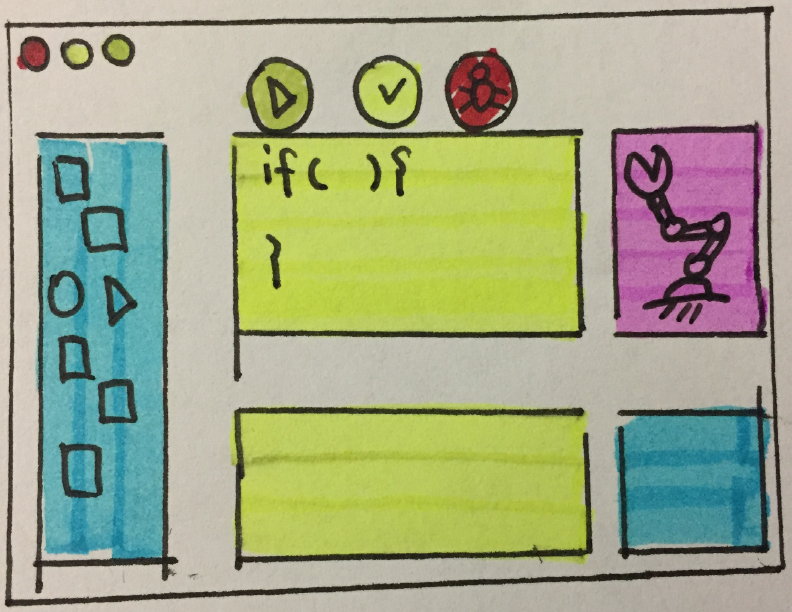 if( ){
}